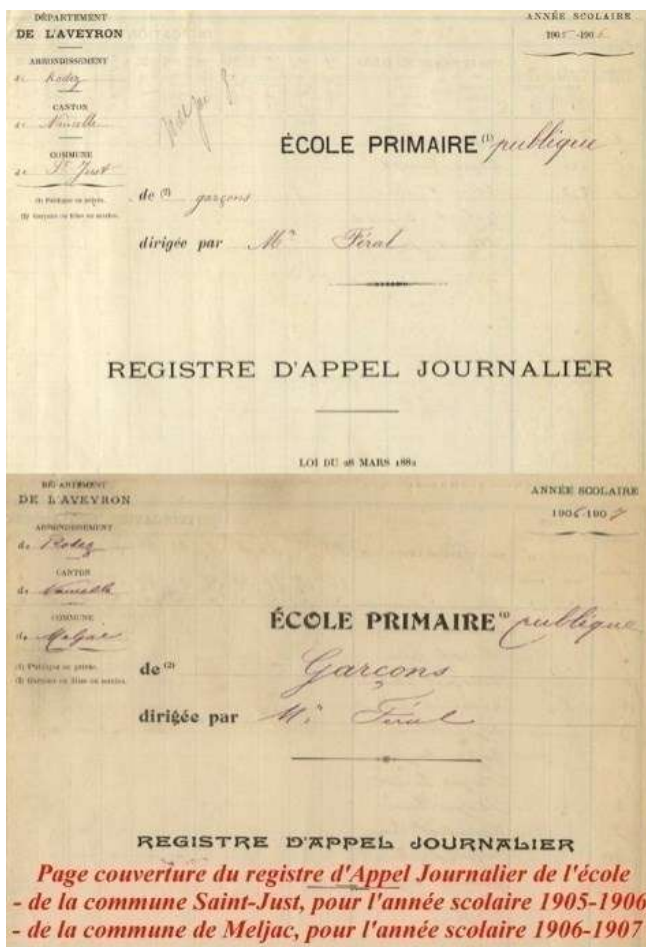 DÉPARTEMENT
DE L'AVEYRON
ARRONDISSEMENT
de Rodez
CANTON
de Naucelle
COMMUNE
de St Just
(1) Publique ou privée.
(2) Garçons ou filles ou mixtes.
ANNÉE SCOLAIRE
1905-1906
Meljac g.
ÉCOLE PRIMAIRE (1) publique
de (2) garçons
dirigée par Mr Féral
REGISTRE D'APPEL JOURNALIER
LOI DU 28 MARS 1882
DÉPARTEMENT
DE L'AVEYRON
ARRONDISSEMENT
de Rodez
CANTON
de Naucelle
COMMUNE
de Meljac
(1) Publique ou privée.
(2) Garçons ou filles ou mixtes.
ANNÉE SCOLAIRE
1906-1907
ÉCOLE PRIMAIRE (1) publique
de (2) Garçons
dirigée par Mr Féral
REGISTRE D'APPEL JOURNALIER
Page couverture du registre d'Appel Journalier de l'école
- de la commune Saint-Just, pour l'année scolaire 1905-1906
- de la commune de Meljac, pour l'année scolaire 1906-1907